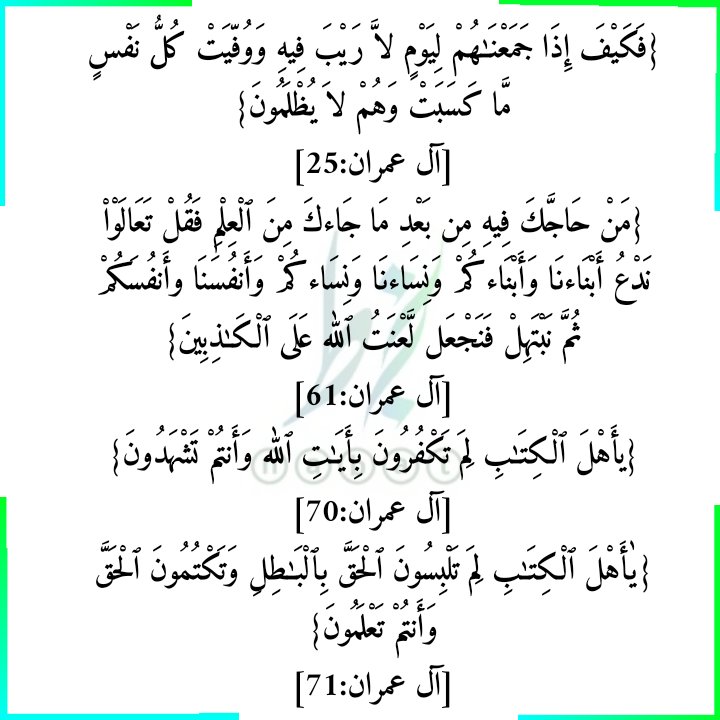 {فَكَيْفَ إِذَا جَمَعْنَـٰهُمْ لِيَوْمٍ لاَّ رَيْبَ فِيهِ وَوُفِّيَتْ كُلُّ نَفْسٍ
مَّا كَسَبَتْ وَهُمْ لاَ يُظْلَمُونَ}
[آل عمران:25]
{مَنْ حَاجَّكَ فِيهِ مِن بَعْدِ مَا جَاءكَ مِنَ ٱلْعِلْمِ فَقُلْ تَعَالَوْاْ
نَدْعُ أَبْنَاءنَا وَأَبْنَاءكُمْ وَنِسَاءنَا وَنِسَاءكُمْ وَأَنفُسَنَا وأَنفُسَكُمْ
ثُمَّ نَبْتَهِلْ فَنَجْعَل لَّعْنَتُ ٱللَّهِ عَلَى ٱلْكَـٰذِبِينَ}
[آل عمران:61]
{يأَهْلَ ٱلْكِتَـٰبِ لِمَ تَكْفُرُونَ بِأَيَـٰتِ ٱللَّهِ وَأَنتُمْ تَشْهَدُونَ}
[آل عمران:70]
{يٰأَهْلَ ٱلْكِتَـٰبِ لِمَ تَلْبِسُونَ ٱلْحَقَّ بِٱلْبَـٰطِلِ وَتَكْتُمُونَ ٱلْحَقَّ
وَأَنتُمْ تَعْلَمُونَ}
[آل عمران:71]